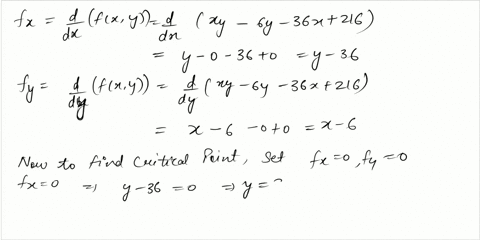 fx = d/dx (f(x,y)) = d/dx (xy - 6y - 36x + 216)
= y - 0 - 36 + 0 = y - 36
fy = d/dy (f(x,y)) = d/dy (xy - 6y - 36x + 216)
= x - 6 - 0 + 0 = x - 6
Now to find Critical Point, Set fx = 0, fy = 0
fx = 0 ⇒ y - 36 = 0 ⇒ y =